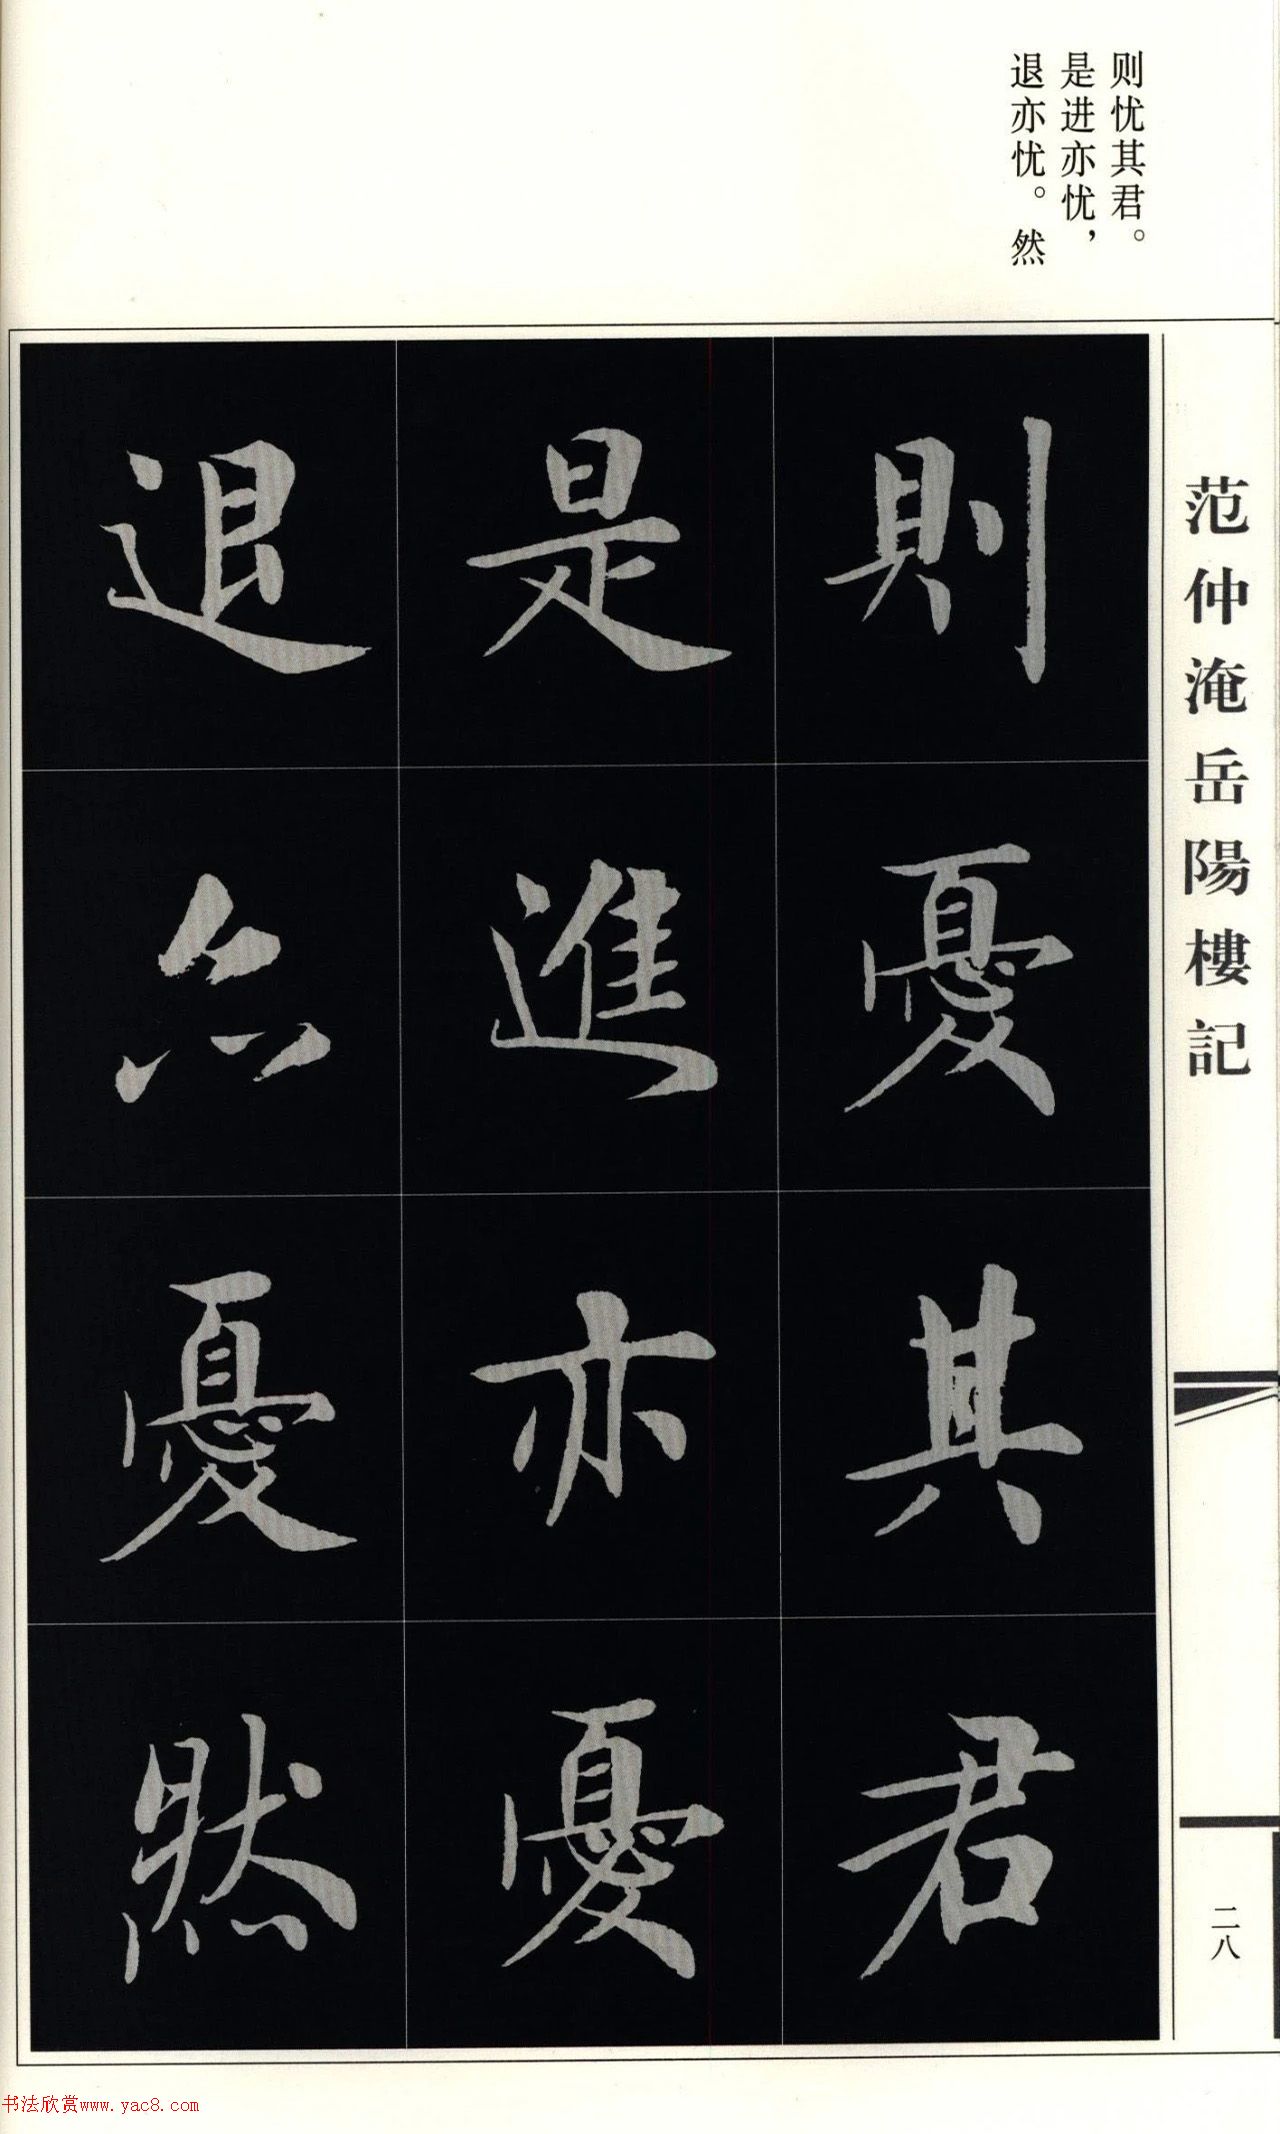 则忧其君。
是进亦忧，
退亦忧。然
范仲淹岳陽樓記
則憂其君
是進亦憂
退亦憂然
二八
书法欣赏www.yac8.com